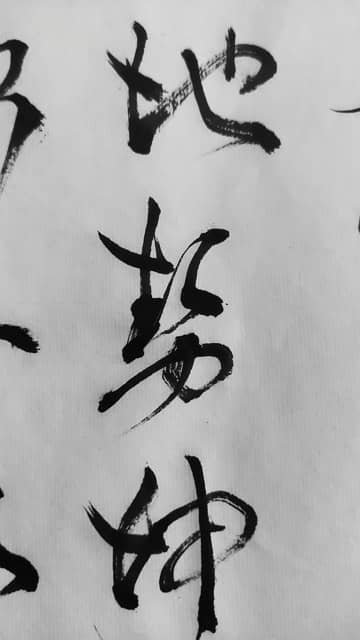 地势坤